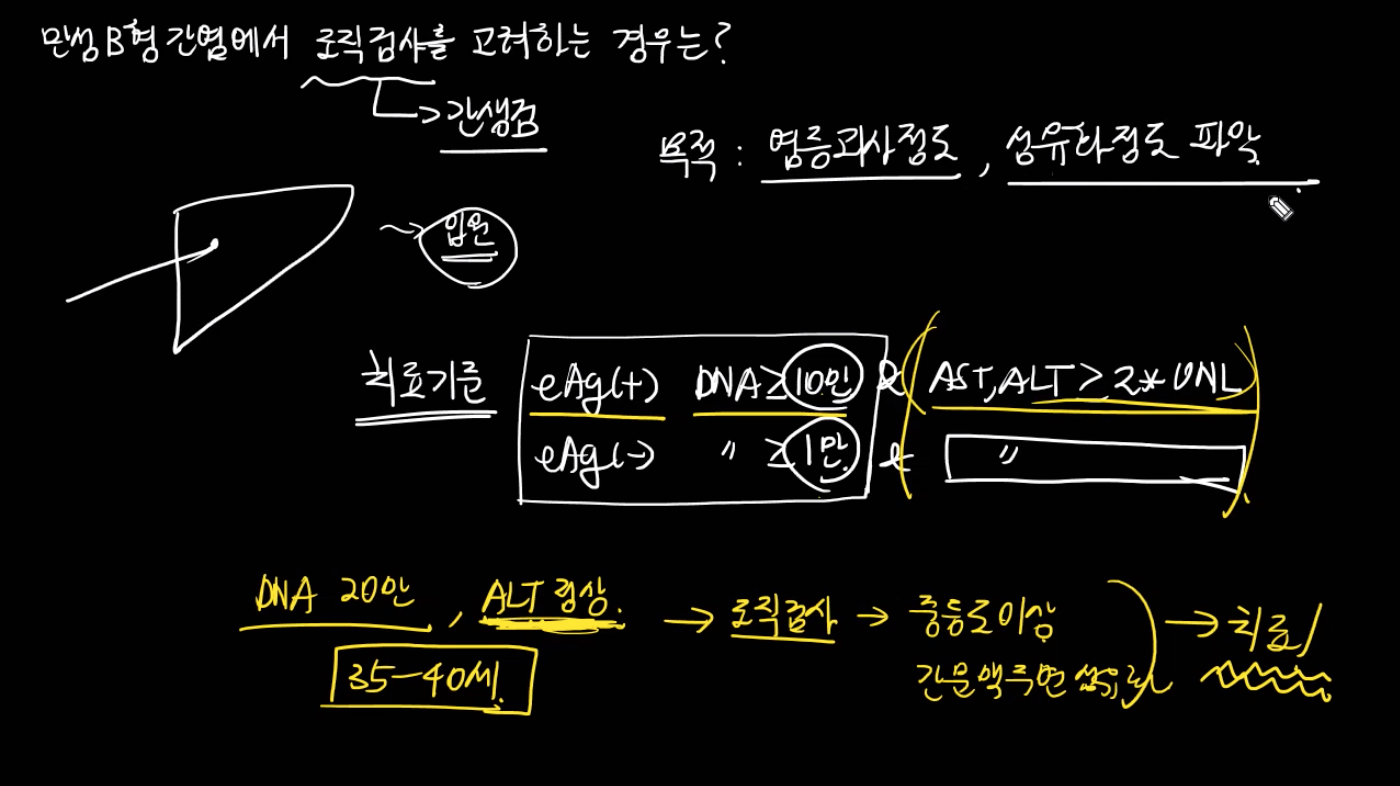 만성B형간염에서 조직검사를 고려하는 경우는?
간생검
목적 : 염증괴사정도, 섬유화정도 파악
입원
치료기준 eAg(+) DNA≥10만 & (AST,ALT≥2*UNL)
eAg(-) 〃 ≥1만 & 〃
DNA 20만, ALT 정상. → 조직검사 → 중등도이상 → 치료
35-40세. 간문맥주변 섬유화